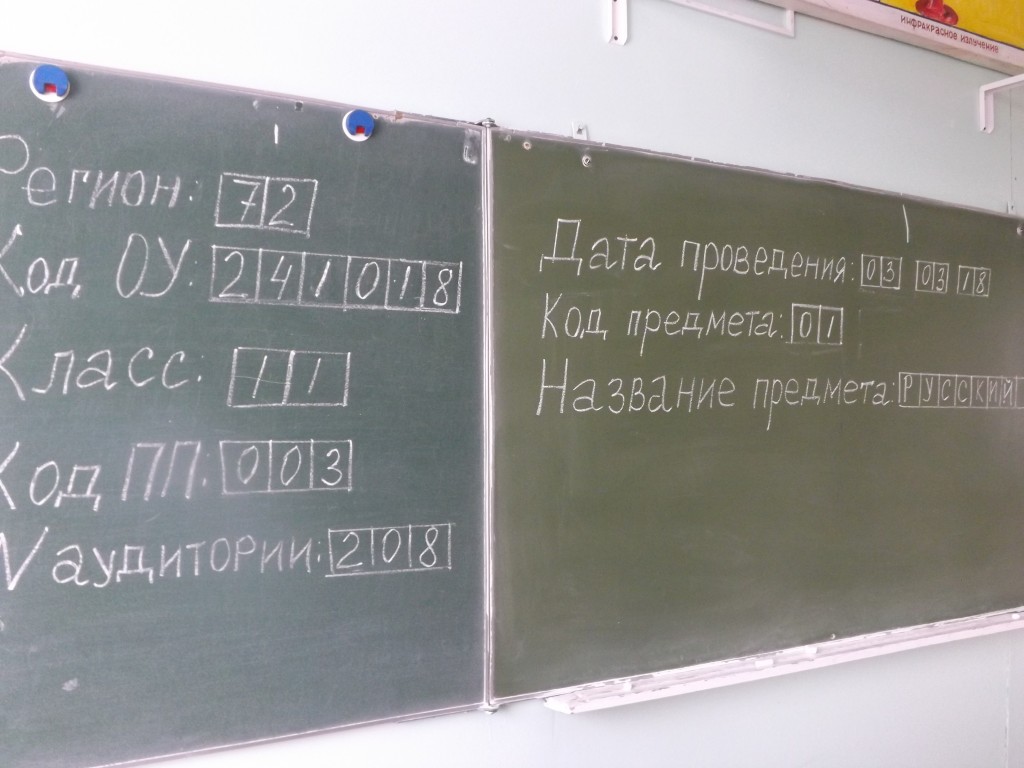 ИНФРАКРАСНОЕ ИЗЛУЧЕНИЕ
Регион: 72
Код ОУ: 241018
Класс: 11
Код ПП: 003
N аудитории: 208
Дата проведения: 03 03 18
Код предмета: 01
Название предмета: РУССКИЙ